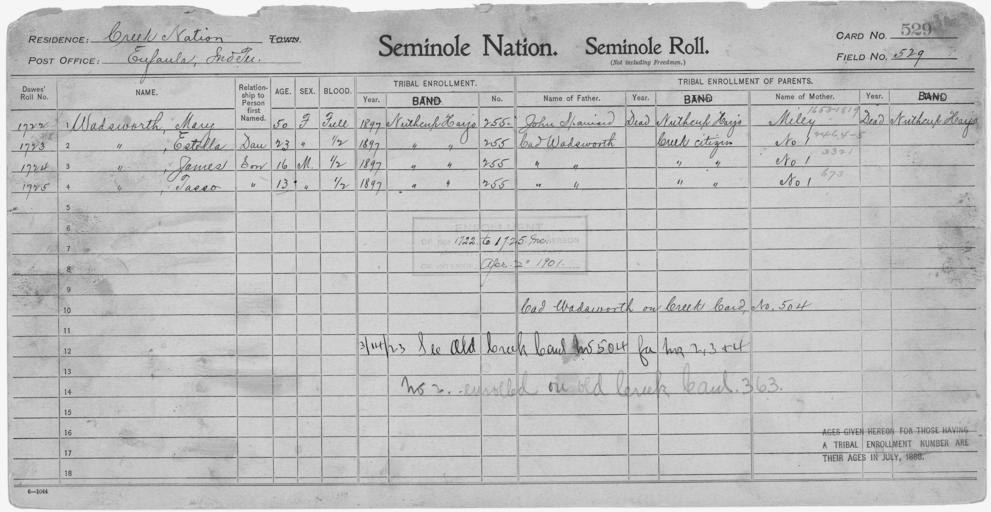 RESIDENCE: Creek Nation TOWN. Seminole Nation. Seminole Roll. CARD NO. 529
POST OFFICE: Eufaula, Ind Ter. (Not including Freedmen.) FIELD NO. 529
Dawes' Roll No. NAME. Relationship to Person first Named. AGE. SEX. BLOOD. TRIBAL ENROLLMENT. TRIBAL ENROLLMENT OF PARENTS.
Year. BAND No. Name of Father. Year. BAND Name of Mother. Year. BAND
1722 1 Wadsworth, Mary 50 F Full 1897 Nuthcup Harjo 255 John Dead Nuthcup Harjo Miley Dead Nuthcup Harjo
1723 2 " , Estella Dau 23 " 1/2 1897 " " 255 Cad Wadsworth Creek citizen No 1
1724 3 " , James Son 16 M. 1/2 1897 " " 255 " " " " No 1
1725 4 " , Tasso " 13 " 1/2 1897 " " 255 " " " " No 1
5
6
7 1722 to 1725 Inc.
8 Apr. 2 1901.
9
10 Cad Wadsworth on Creek Card, No. 504
11
12 3/14/23 See Old Creek Card No 504 for No 2, 3 & 4
13
14 No 2. enrolled on old Creek Card. 363.
15
16 AGES GIVEN HEREON FOR THOSE HAVING
17 A TRIBAL ENROLLMENT NUMBER ARE
THEIR AGES IN JULY, 1898.
18
6—1044